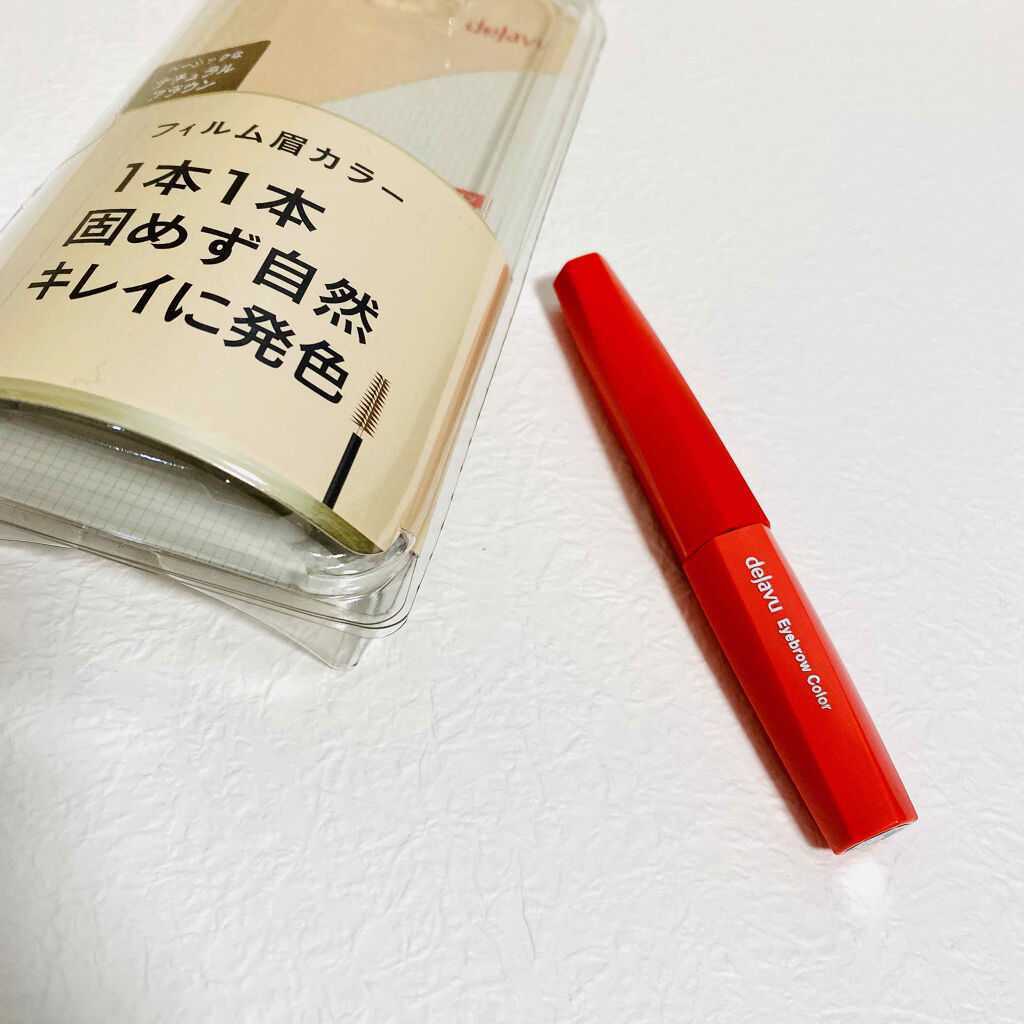 dejavu
ベーシックな
ナチュラル
ブラウン
フィルム眉カラー
1本1本
固めず自然
キレイに発色
dejavu Eyebrow Color